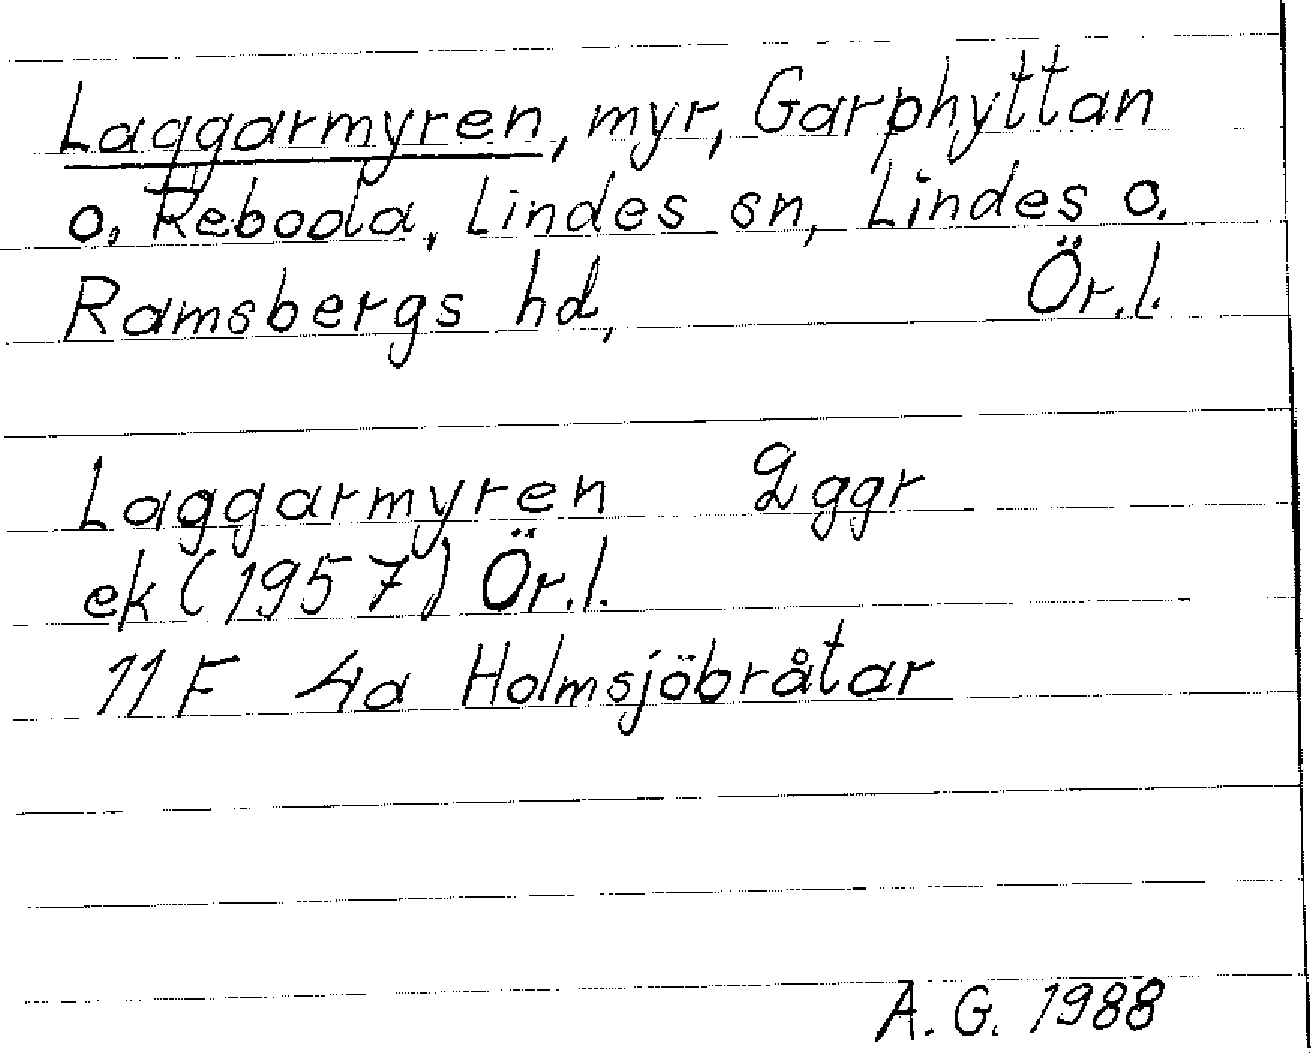 Laggarmyren, myr, Garphyttan
o. Reboda, Lindes sn, Lindes o.
Ramsbergs hd, Ör.l.
Laggarmyren 2 ggr
ek (1957) Ör.l.
11F 4a Holmsjöbråtar
A.G. 1988